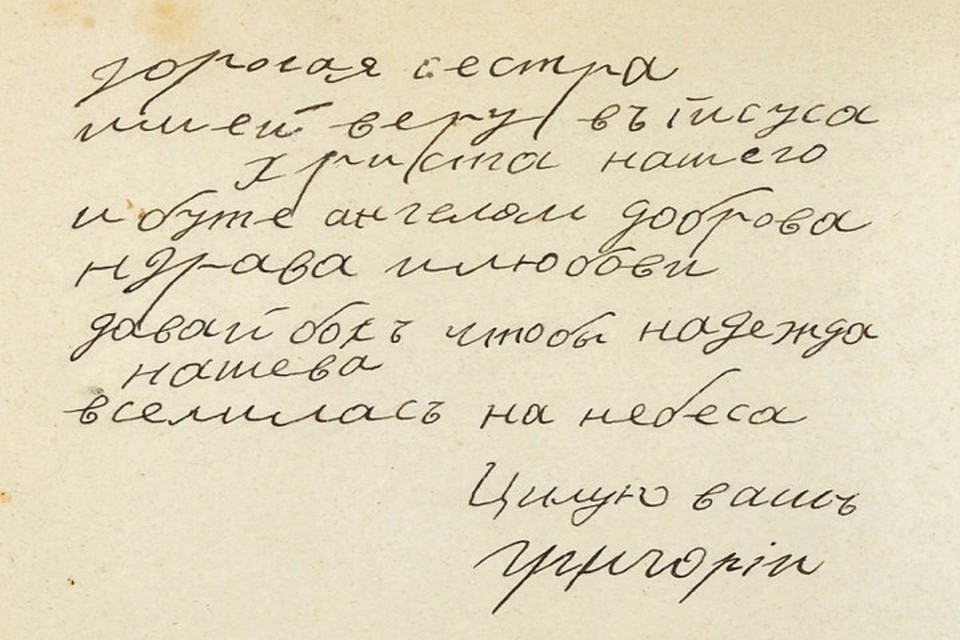 дорогая сестра
имей веру въ Іисуса
христа нашего
и буте ангелом доброва
нздрава и любови
давай бохъ чтобы надежда
нашева
вселиласъ на небеса
Цилую вашъ
Григоріи